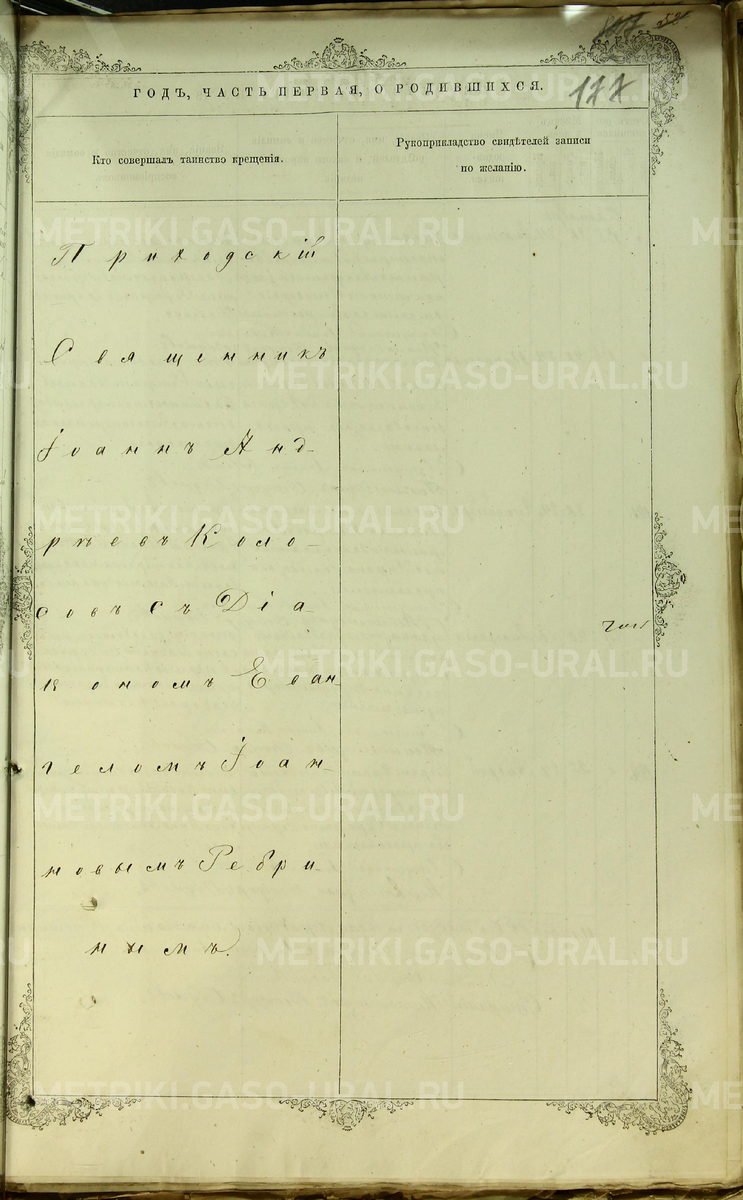 177
ГОДЪ, ЧАСТЬ ПЕРВАЯ, О РОДИВШИХСЯ.
Кто совершалъ таинство крещенія.
Рукоприкладство свидѣтелей записи
по желанію.
Приходскій
Священникъ
Іоаннъ Анд-
рѣевъ Коло-
совъ съ Діа-
кономъ Еван-
геломъ Іоан-
новымъ Ребри-
нымъ.
METRIKI.GASO-URAL.RU